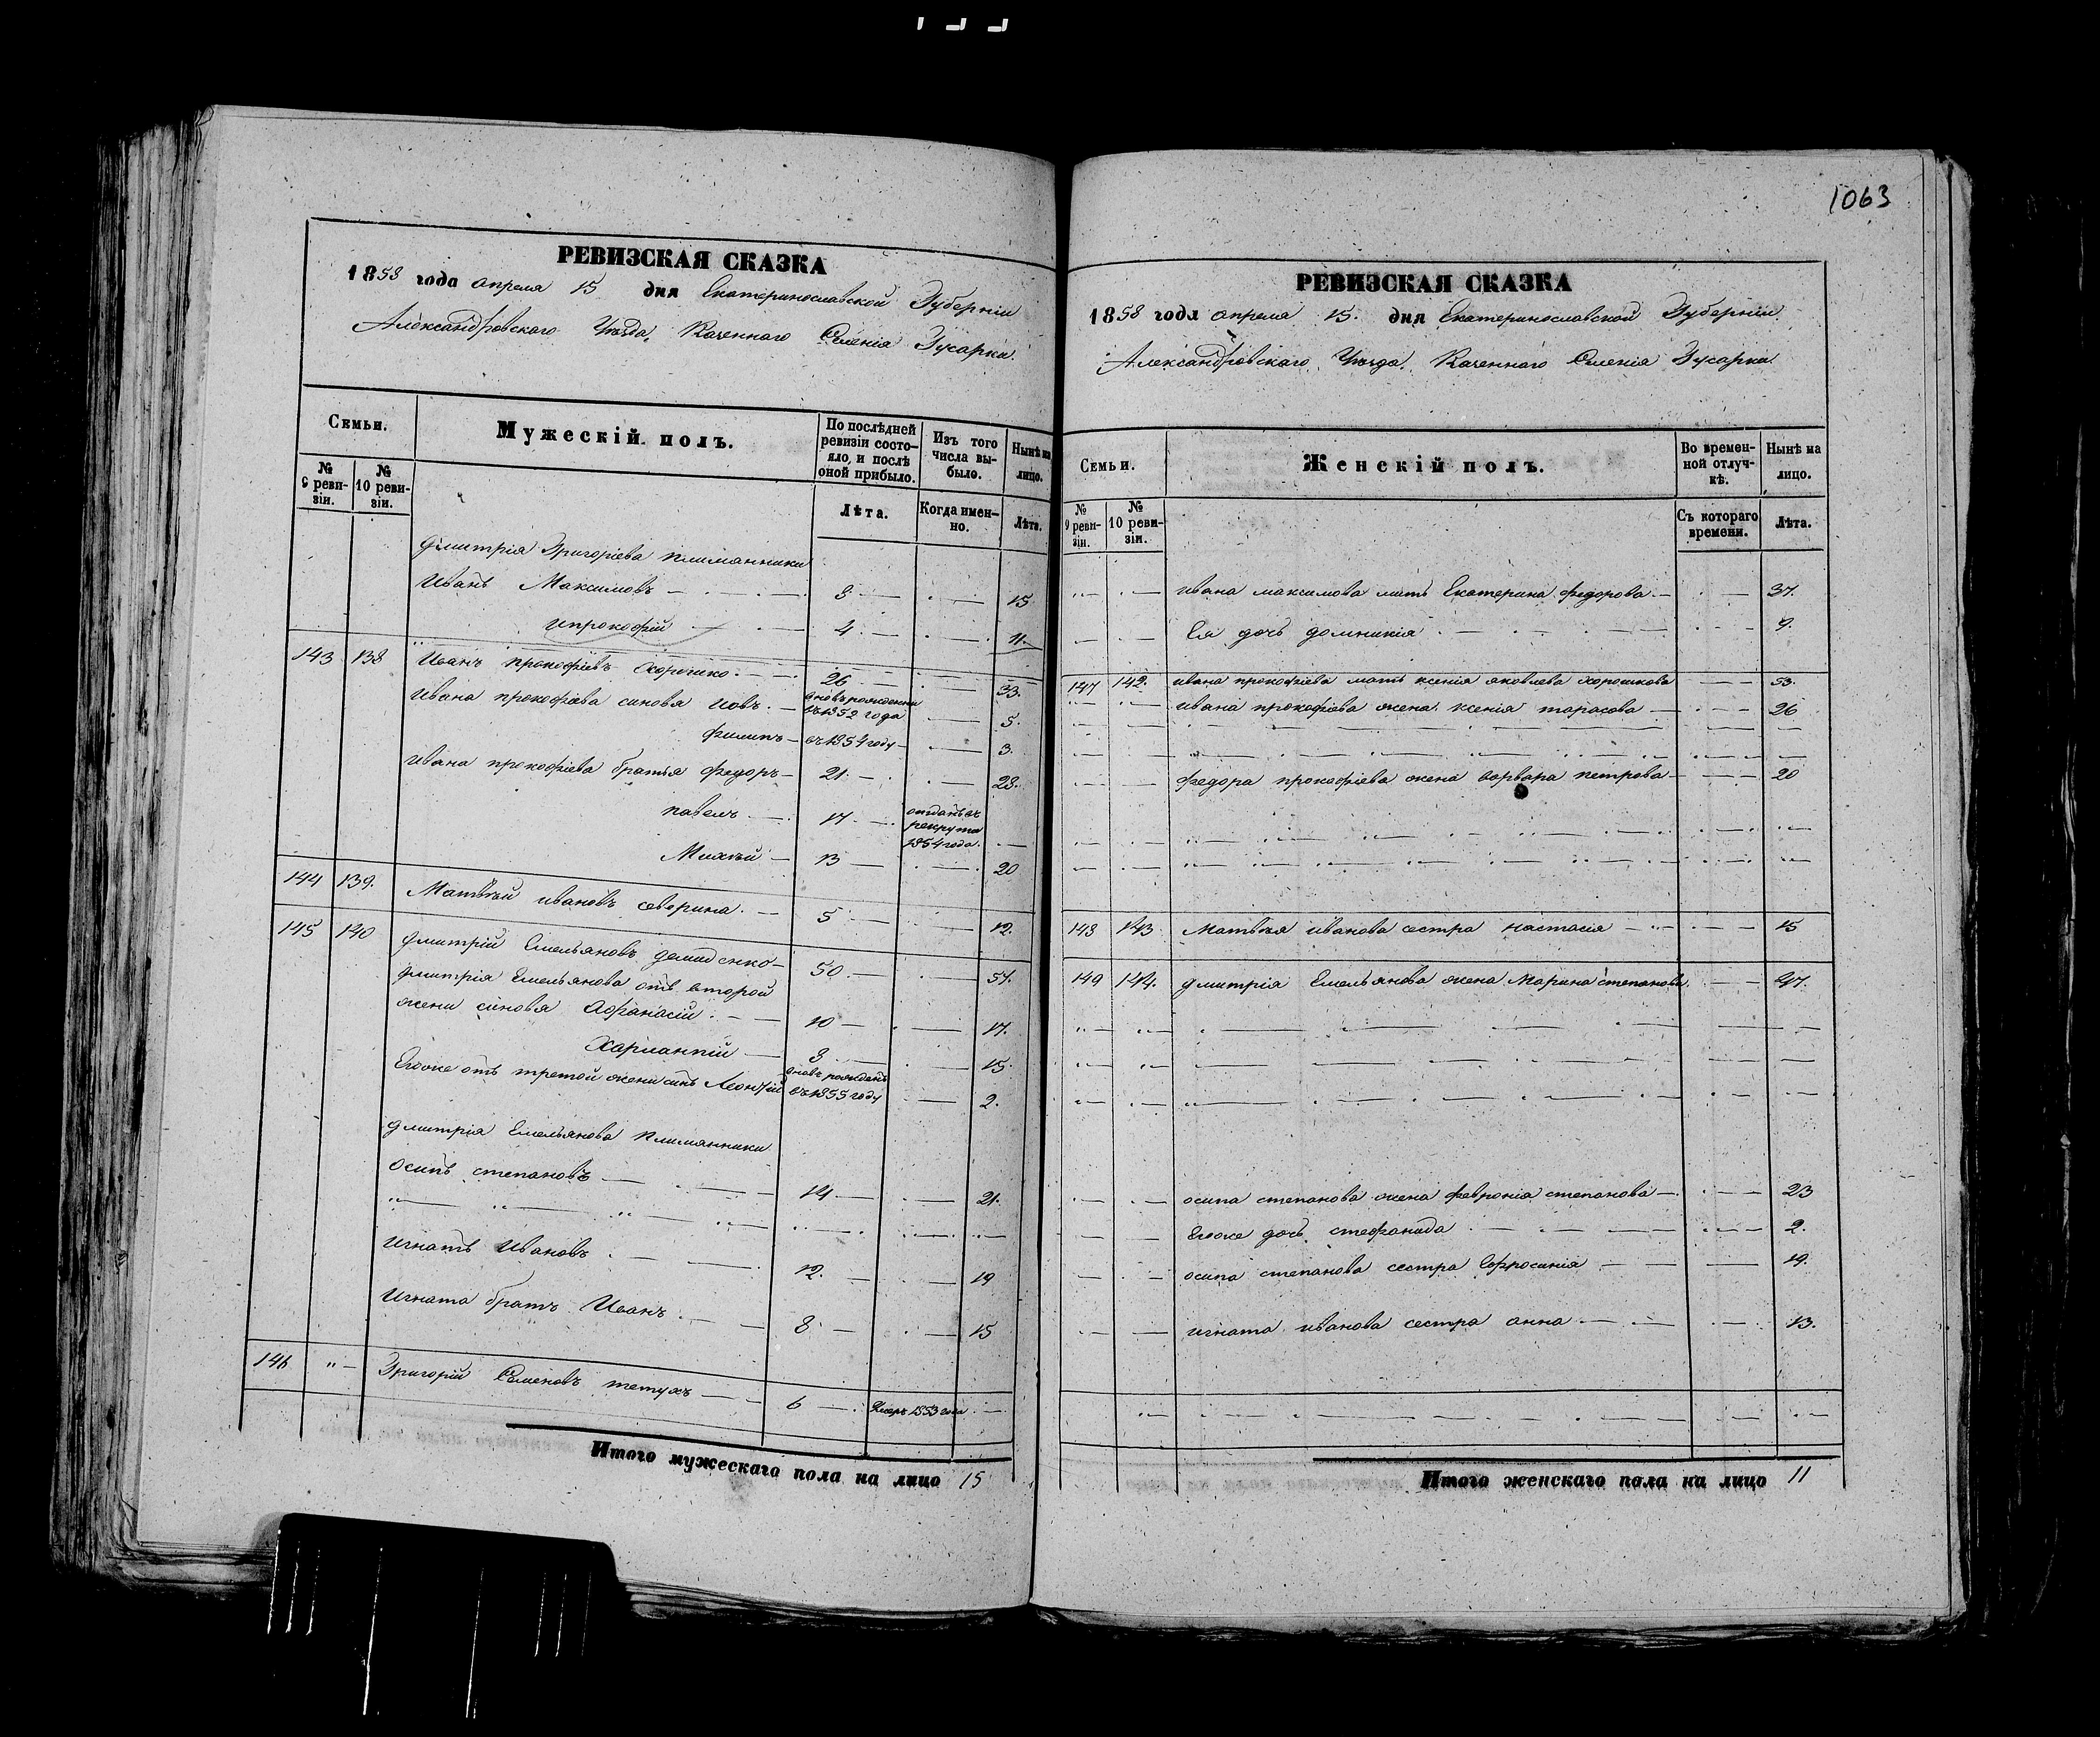 1063
РЕВИЗСКАЯ СКАЗКА
1858 года апреля 15 дня Екатеринославской Губерніи
Александровскаго Уезда, Казеннаго Селенія Гусарки.
Семьи.
Мужескій полъ.
По послѣдней ревизіи состояло, и послѣ оной прибыло.
Изъ того числа выбыло.
Нынѣ на лицо.
№ 9 ревизіи.
№ 10 ревизіи.
Лѣта.
Когда именно.
Лѣта.
Дмитрія Григоріева племянники
Иванъ Максимовъ — 8 — 15
и прокофій — 4 — 11.
143 138 Иванъ прокофіевъ Хорошко — 26 — 33.
Ивана прокофіева синовя Иовъ — вновъ рожденни въ 1852 года — 5.
филипъ — въ 1854 году — 3.
Ивана прокофіева братья федоръ — 21 — 28.
павелъ — 17 — отданъ въ рекрута 1854 года —
Михей — 13 — 20
144 139. Матвѣй ивановъ северина — 5 — 12.
145 140 Дмитрій Емельяновъ демиденко — 50 — 57.
Дмитрія Емельянова отъ второй
жени синовя Афанасій — 10 — 17.
Харлампій — 8 — 15.
Егоже отъ третой жени синъ Леонтій — вновъ рожденъ въ 1855 году — 2.
Дмитрія Емельянова племянники
осипъ степановъ — 14 — 21.
игнатъ Ивановъ — 12. — 19
Игната братъ Иванъ — 8 — 15
146 "— Григорій Семеновъ тетухъ — 6 — Умеръ 1853 года —
Итого мужескаго пола на лицо 15
РЕВИЗСКАЯ СКАЗКА
1858 года апреля 15. дня Екатеринославской Губерніи.
Александровскаго Уезда, Казеннаго Селенія Гусарки.
Семьи.
Женскій полъ.
Во временной отлучкѣ.
Нынѣ на лицо.
№ 9 ревизіи.
№ 10 ревизіи.
Съ котораго времени.
Лѣта.
ивана максимова мать Екатерина федорова — 37.
Ея дочь домникія — 9.
147 142. ивана прокофіева мать ксенія яковлева хорошкова — 53.
ивана прокофіева жена ксенія тарасова — 26
федора прокофіева жена варвара петрова — 20
148 143 Матвѣя иванова сестра настасія — 15
149 144. дмитрія Емельянова жена Марина степанова — 47.
осипа степанова жена февронія степанова — 23
Егоже дочь стефанида — 2.
осипа степанова сестра Ефросинія — 19.
игната иванова сестра анна — 13.
Итого женскаго пола на лицо 11